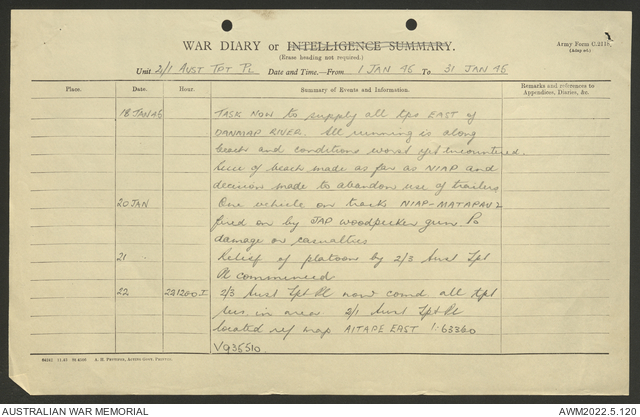 WAR DIARY or INTELLIGENCE SUMMARY.
Army Form C.2118.
(Erase heading not required.)
Unit 2/1 AUST TPT PL Date and Time.—From 1 JAN 45 To 31 JAN 45
Place. Date. Hour. Summary of Events and Information. Remarks and references to Appendices, Diaries, &c.
18 JAN 45 TASK NOW to supply all tps EAST of
DANMAP RIVER. All running is along
beach and conditions worst yet encountered.
Recce of beach made as far as NIAP and
decision made to abandon use of trailers
20 JAN One vehicle on tracks NIAP-MATAPAU 2
fired on by JAP woodpecker gun No
damage or casualties
21 Relief of platoons by 2/3 Aust Tpt
Pl commenced
22 221200 I 2/3 Aust Tpt Pl now comd all tpt
in area 2/1 Aust Tpt Pl
located ref map AITAPE EAST 1:63360
VQ35510.
AUSTRALIAN WAR MEMORIAL
AWM2022.5.120